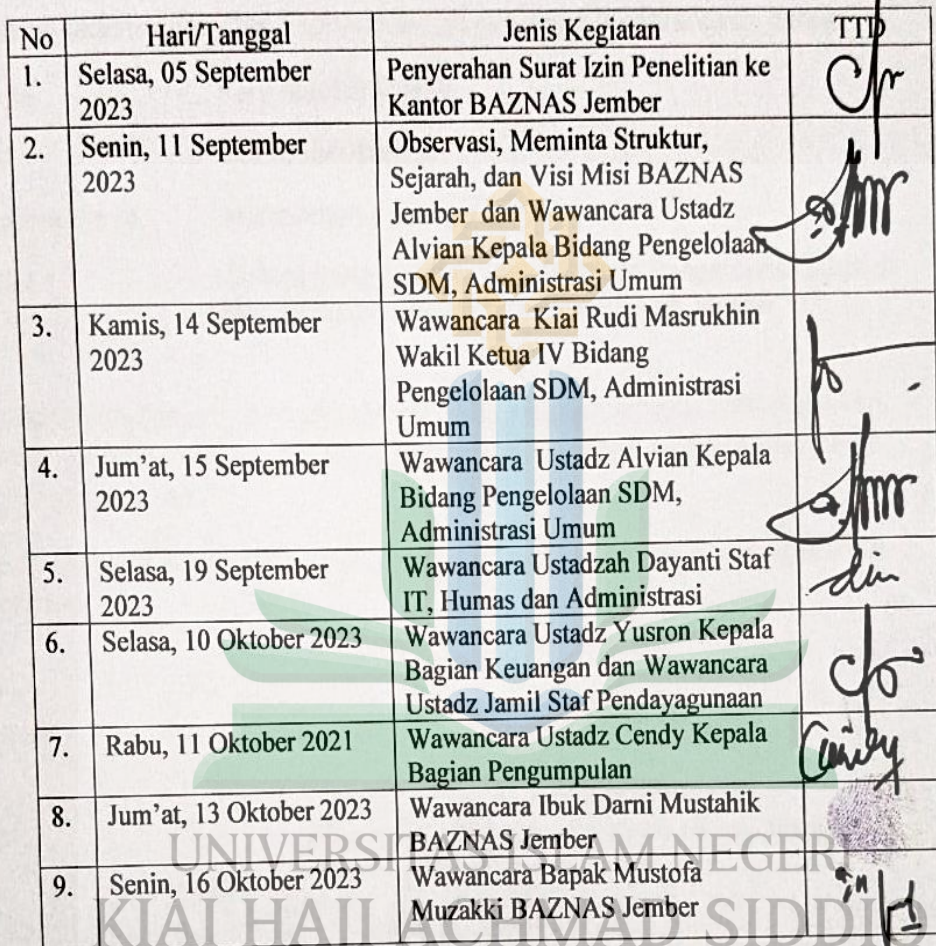 No Hari/Tanggal Jenis Kegiatan TTD
1. Selasa, 05 September Penyerahan Surat Izin Penelitian ke
2023 Kantor BAZNAS Jember
2. Senin, 11 September Observasi, Meminta Struktur,
2023 Sejarah, dan Visi Misi BAZNAS
Jember dan Wawancara Ustadz
Alvian Kepala Bidang Pengelolaan
SDM, Administrasi Umum
3. Kamis, 14 September Wawancara Kiai Rudi Masrukhin
2023 Wakil Ketua IV Bidang
Pengelolaan SDM, Administrasi
Umum
4. Jum'at, 15 September Wawancara Ustadz Alvian Kepala
2023 Bidang Pengelolaan SDM,
Administrasi Umum
5. Selasa, 19 September Wawancara Ustadzah Dayanti Staf
2023 IT, Humas dan Administrasi
6. Selasa, 10 Oktober 2023 Wawancara Ustadz Yusron Kepala
Bagian Keuangan dan Wawancara
Ustadz Jamil Staf Pendayagunaan
7. Rabu, 11 Oktober 2021 Wawancara Ustadz Cendy Kepala
Bagian Pengumpulan
8. Jum'at, 13 Oktober 2023 Wawancara Ibuk Darni Mustahik
BAZNAS Jember
9. Senin, 16 Oktober 2023 Wawancara Bapak Mustofa
Muzakki BAZNAS Jember
UNIVERSITAS ISLAM NEGERI
KIAI HAJI ACHMAD SIDDIQ